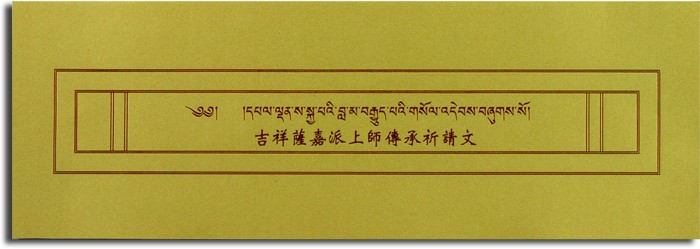 ༄༅། །དཔལ་ལྡན་ས་སྐྱ་པའི་བླ་མ་བརྒྱུད་པའི་གསོལ་འདེབས་བཞུགས་སོ།
吉祥薩嘉派上師傳承祈請文